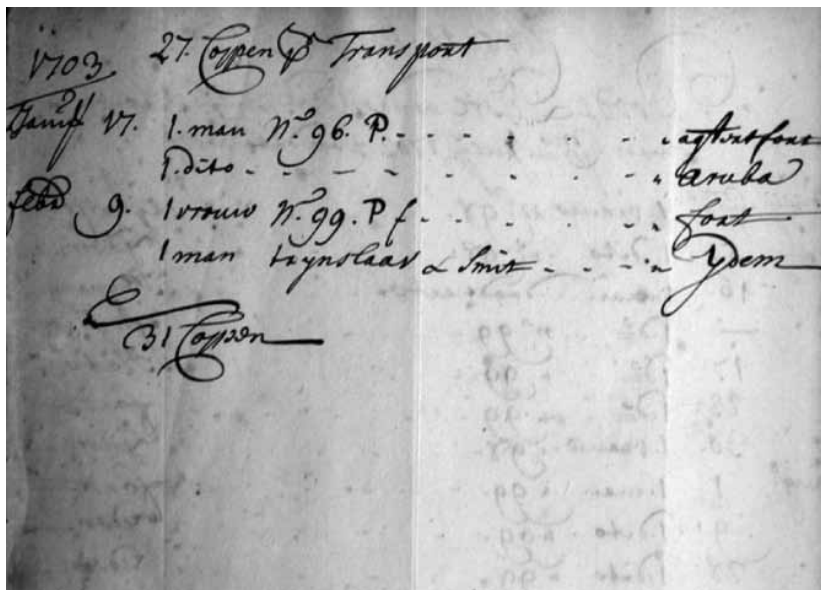 1703 27. Coppen pr Transport
Janij 17. 1. man No. 96. P. - - - - - - - agt int fort
1. dito - - - - - - - - - " aruba
feba 9. 1 vrouw No. 99. P f - - - - - " fort
1 man tuynslaav & Smit - - - - " Ydem
31 Coppen